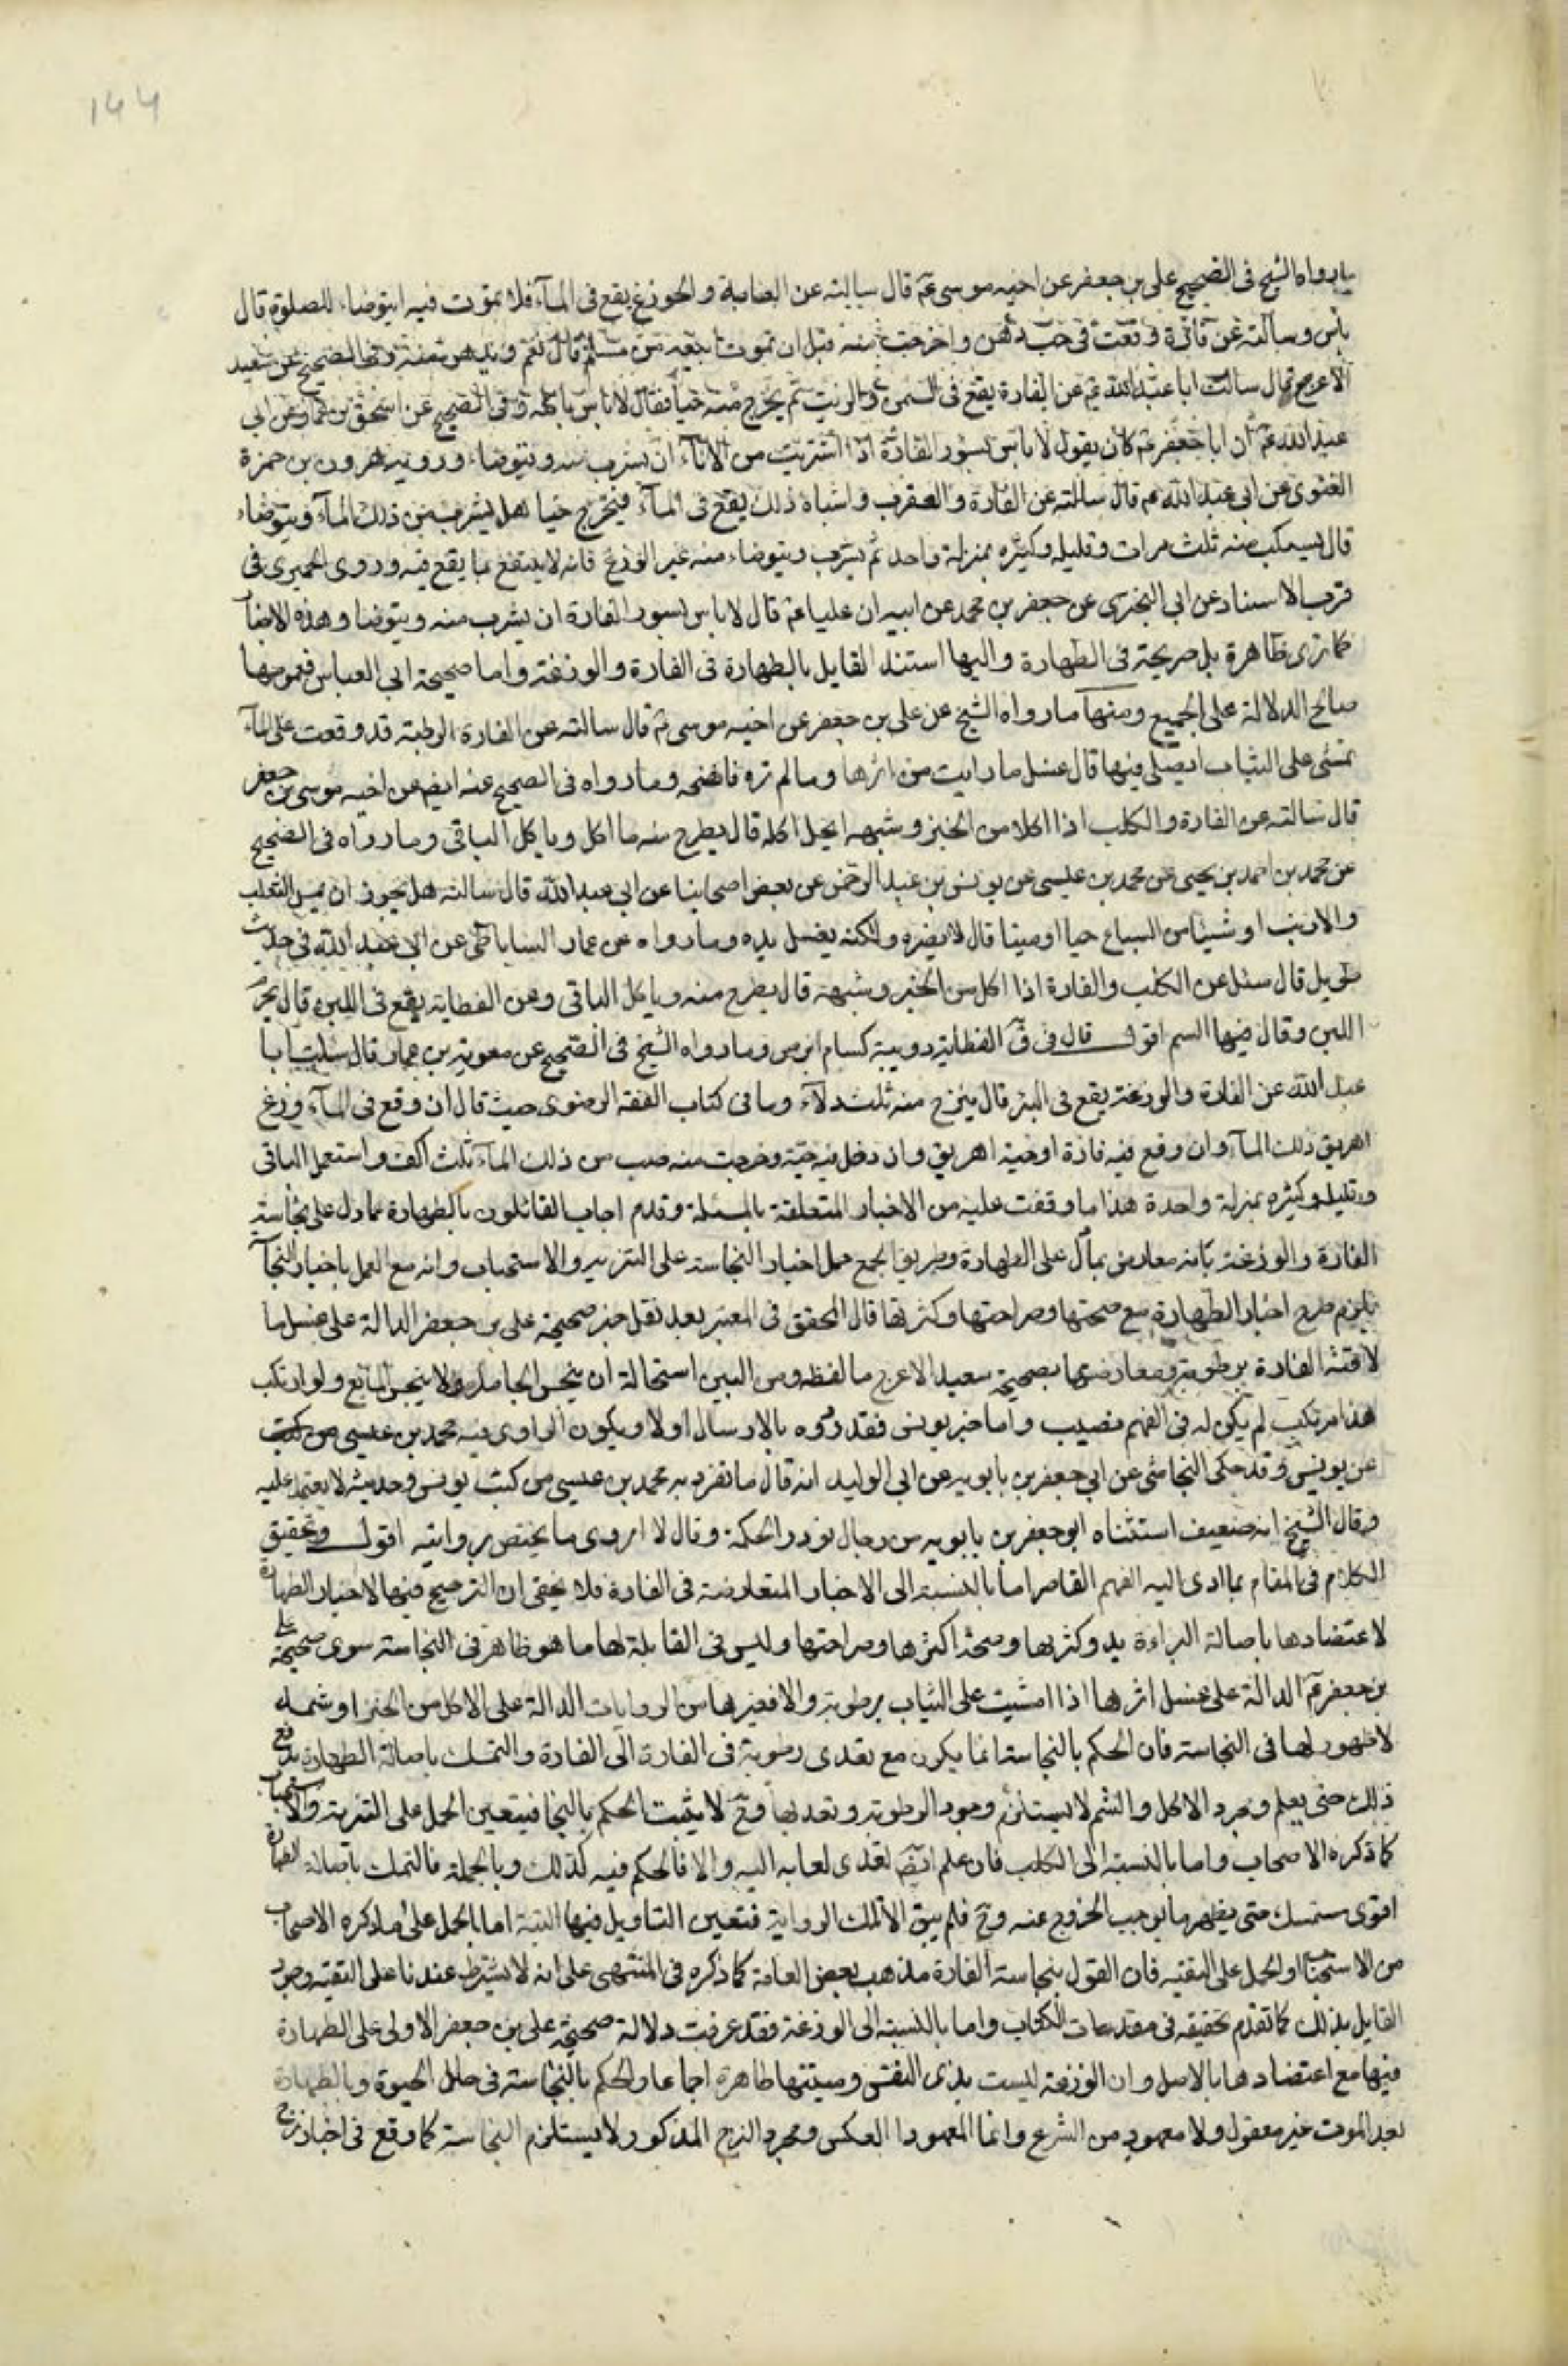 ١٤٤
ما رواه الشيخ فى الصحيح على بن جعفر عن اخيه موسى عم قال سالته عن العظاية و الحية و الوزغ يقع فى المآء فلا يموت فيه ايتوضاء للصلوة قال
باس وسالته عن فارة وقعت فى حب دهن واخرجت منه قبل ان تموت ابيعه من مسلم قال نعم ويدهن منه وفى الصحيح عن سعيد
الاعرج قال سالت ابا عبد الله عم عن الفارة يقع فى السمن والزيت ثم يخرج منه حيا فقال لا باس باكله وفى الصحيح عن اسحق بن عمار عن ابى
عبد الله عم ان ابا جعفر عم كان يقول لا باس بسور الفارة اذا اشربت من الانآء ان يشرب منه ويتوضاء ورواية هرون بن حمزة
الغنوى عن ابى عبد الله عم قال سالته عن الفارة والعقرب واشباه ذلك يقع فى المآء فيخرج حيا هل يشرب من ذلك المآء ويتوضاء
قال يسكب منه ثلث مرات وقليله وكثيره بمنزلة واحد ثم يشرب ويتوضاء منه غير الوزغ فانه لا ينتفع بما يقع فيه وروى الحميرى فى
قرب الاسناد عن ابى البخترى عن جعفر بن محمد عن ابيه ان عليا عم قال لا باس بسور الفارة ان يشرب منه ويتوضا وهذه الاخبار
كما ترى ظاهرة بل صريحة فى الطهارة واليها استند القايل بالطهارة فى الفارة والوزغة واما صحيحة ابى العباس فعمومها
صالح الدلالة على الجميع ومنها ما رواه الشيخ عن على بن جعفر عن اخيه موسى عم قال سالته عن الفارة الرطبة قد وقعت على المآء
تمشى على الثياب ايصلى فيها قال غسل ما رايت من اثرها وما لم تره فانضحه وما رواه فى الصحيح عنه ايض عن اخيه موسى بن جعفر
قال سالته عن الفارة والكلب اذا اكلا من الخبز وشبهه ايحل اكله قال يطرح منه ما اكل وياكل الباقى وما رواه فى الصحيح
عن محمد بن احمد بن يحيى عن محمد بن عيسى عن يونس بن عبد الرحمن عن بعض اصحابنا عن ابى عبد الله قال سالته هل يجوز ان يمس الثعلب
والارنب او شيئا من السباع حيا او ميتا قال لا يضره ولكنه يغسل يده وما رواه عن عمار الساباطى عن ابى عبد الله فى حديث
طويل قال سئل عن الكلب والفارة اذا اكل من الخبز وشبهه قال يطرح منه وياكل الباقى وعن العظاية يقع فى اللبن قال يحرم
اللبن وقال فيها السم اقول قال فى ق العظاية دويبة كسام ابرص وما رواه الشيخ فى الصحيح عن معوية بن عمار قال سئلت ابا
عبد الله عن الفارة والوزغة يقع فى البئر قال ينزح منه ثلث دلآء وما فى كتاب الفقه الرضوى حيث قال ان وقع فى المآء وزغ
اهريق ذلك المآء وان وقع فيه فارة او حية اهريق وان دخل فيه حية وخرجت منه صب من ذلك المآء ثلث اكف واستعمل الباقى
وقليله وكثيره بمنزلة واحدة هذا ما وقفت عليه من الاخبار المتعلقة بالمسئلة وقدم اجاب القائلون بالطهارة عما دل على نجاسة
الفارة والوزغة بانه معارض بما دل على الطهارة وطريق الجمع حمل اخبار النجاسة على التنزيه والاستحباب وانه مع العمل باخبار النجآ
يلزم طرح اخبار الطهارة مع صحتها وصراحتها وكثرتها قال المحقق فى المعتبر بعد نقل خبر صحيحة على بن جعفر الدالة على غسل ما
لاقته الفارة برطوبة ومعارضها بصحيحة سعيد الاعرج ما لفظه ومن البين استحالة ان ينجس الجامد ولا ينجس المايع ولو ارتكب
هذا مرتكب لم يكن له فى الفهم نصيب واما خبر يونس فقد ردوه بالارسال اولا ويكون الراوى فيه محمد بن عيسى من كتب
عن يونس وقد حكى النجاشى عن ابى جعفر بن بابويه عن ابى الوليد انه قال ما تفرد به محمد بن عيسى من كتب يونس وحديثه لا يعتمد عليه
وقال الشيخ انه ضعيف استثناه ابو جعفر بن بابويه من رجال نودر الحكمة وقال لا اروى ما يختص بروايته اقول وتحقيق
الكلام فى المقام بما ادى اليه الفهم القاصر اما بالنسبة الى الاخبار المتعارضة فى الفارة فلا يخفى ان الترجيح فيها لاخبار الطهارة
لاعتضادها باصالة البراءة بل وكثرتها وصحة اكثرها وصراحتها وليس فى القابلة لها ما هو ظاهر فى النجاسة سوى صحيحة على
بن جعفر عم الدالة على غسل اثرها اذا امشيت على الثياب برطوبة والا فغيرها من الروايات الدالة على الاكل من الخبز او شمه
لا ظهور لها فى النجاسة فان الحكم بالنجاسة انما يكون مع تعدى رطوبة فى الفارة الى الفارة والتمسك باصالة الطهارة يدفع
ذلك حتى يعلم ومجرد الاكل والشم لا يستلزم وجود الرطوبة وتعديها وح لا يثبت الحكم بالنجا فيتعين الحمل على التنزيه والاستحباب
كما ذكره الاصحاب واما بالنسبة الى الكلب فان علم ايض تعدى لعابه اليه والا فالحكم فيه كذلك وبالجملة فالتمسك باصالة الطهارة
اقوى مستمسك حتى يظهر ما يوجب الخروج عنه وح فلم يبق الا تلك الرواية فتعين التاويل فيها البتة اما بالحمل على ما ذكره الاصحاب
من الاستحباب او الحمل على التقيه فان القول بنجاسة الفارة مذهب بعض العامة كما ذكره فى المنتهى على انه لا يشترط عندنا على التقيه وجود
القايل بذلك كما تقدم تحقيقه فى مقدمات الكتاب واما بالنسبة الى الوزغة فقد عرفت دلالة صحيحة على بن جعفر الاولى على الطهارة
فيها مع اعتضادها بالاصل وان الوزغة ليست بذى النفس وميتتها طاهرة اجماعا والحكم بالنجاسة فى حال الحيوة وبالطهارة
بعد الموت غير معقول ولا معهود من الشرع وانما المعهود العكس ومجرد النزح المذكور لا يستلزم النجاسة كما وقع فى اخبار نزح